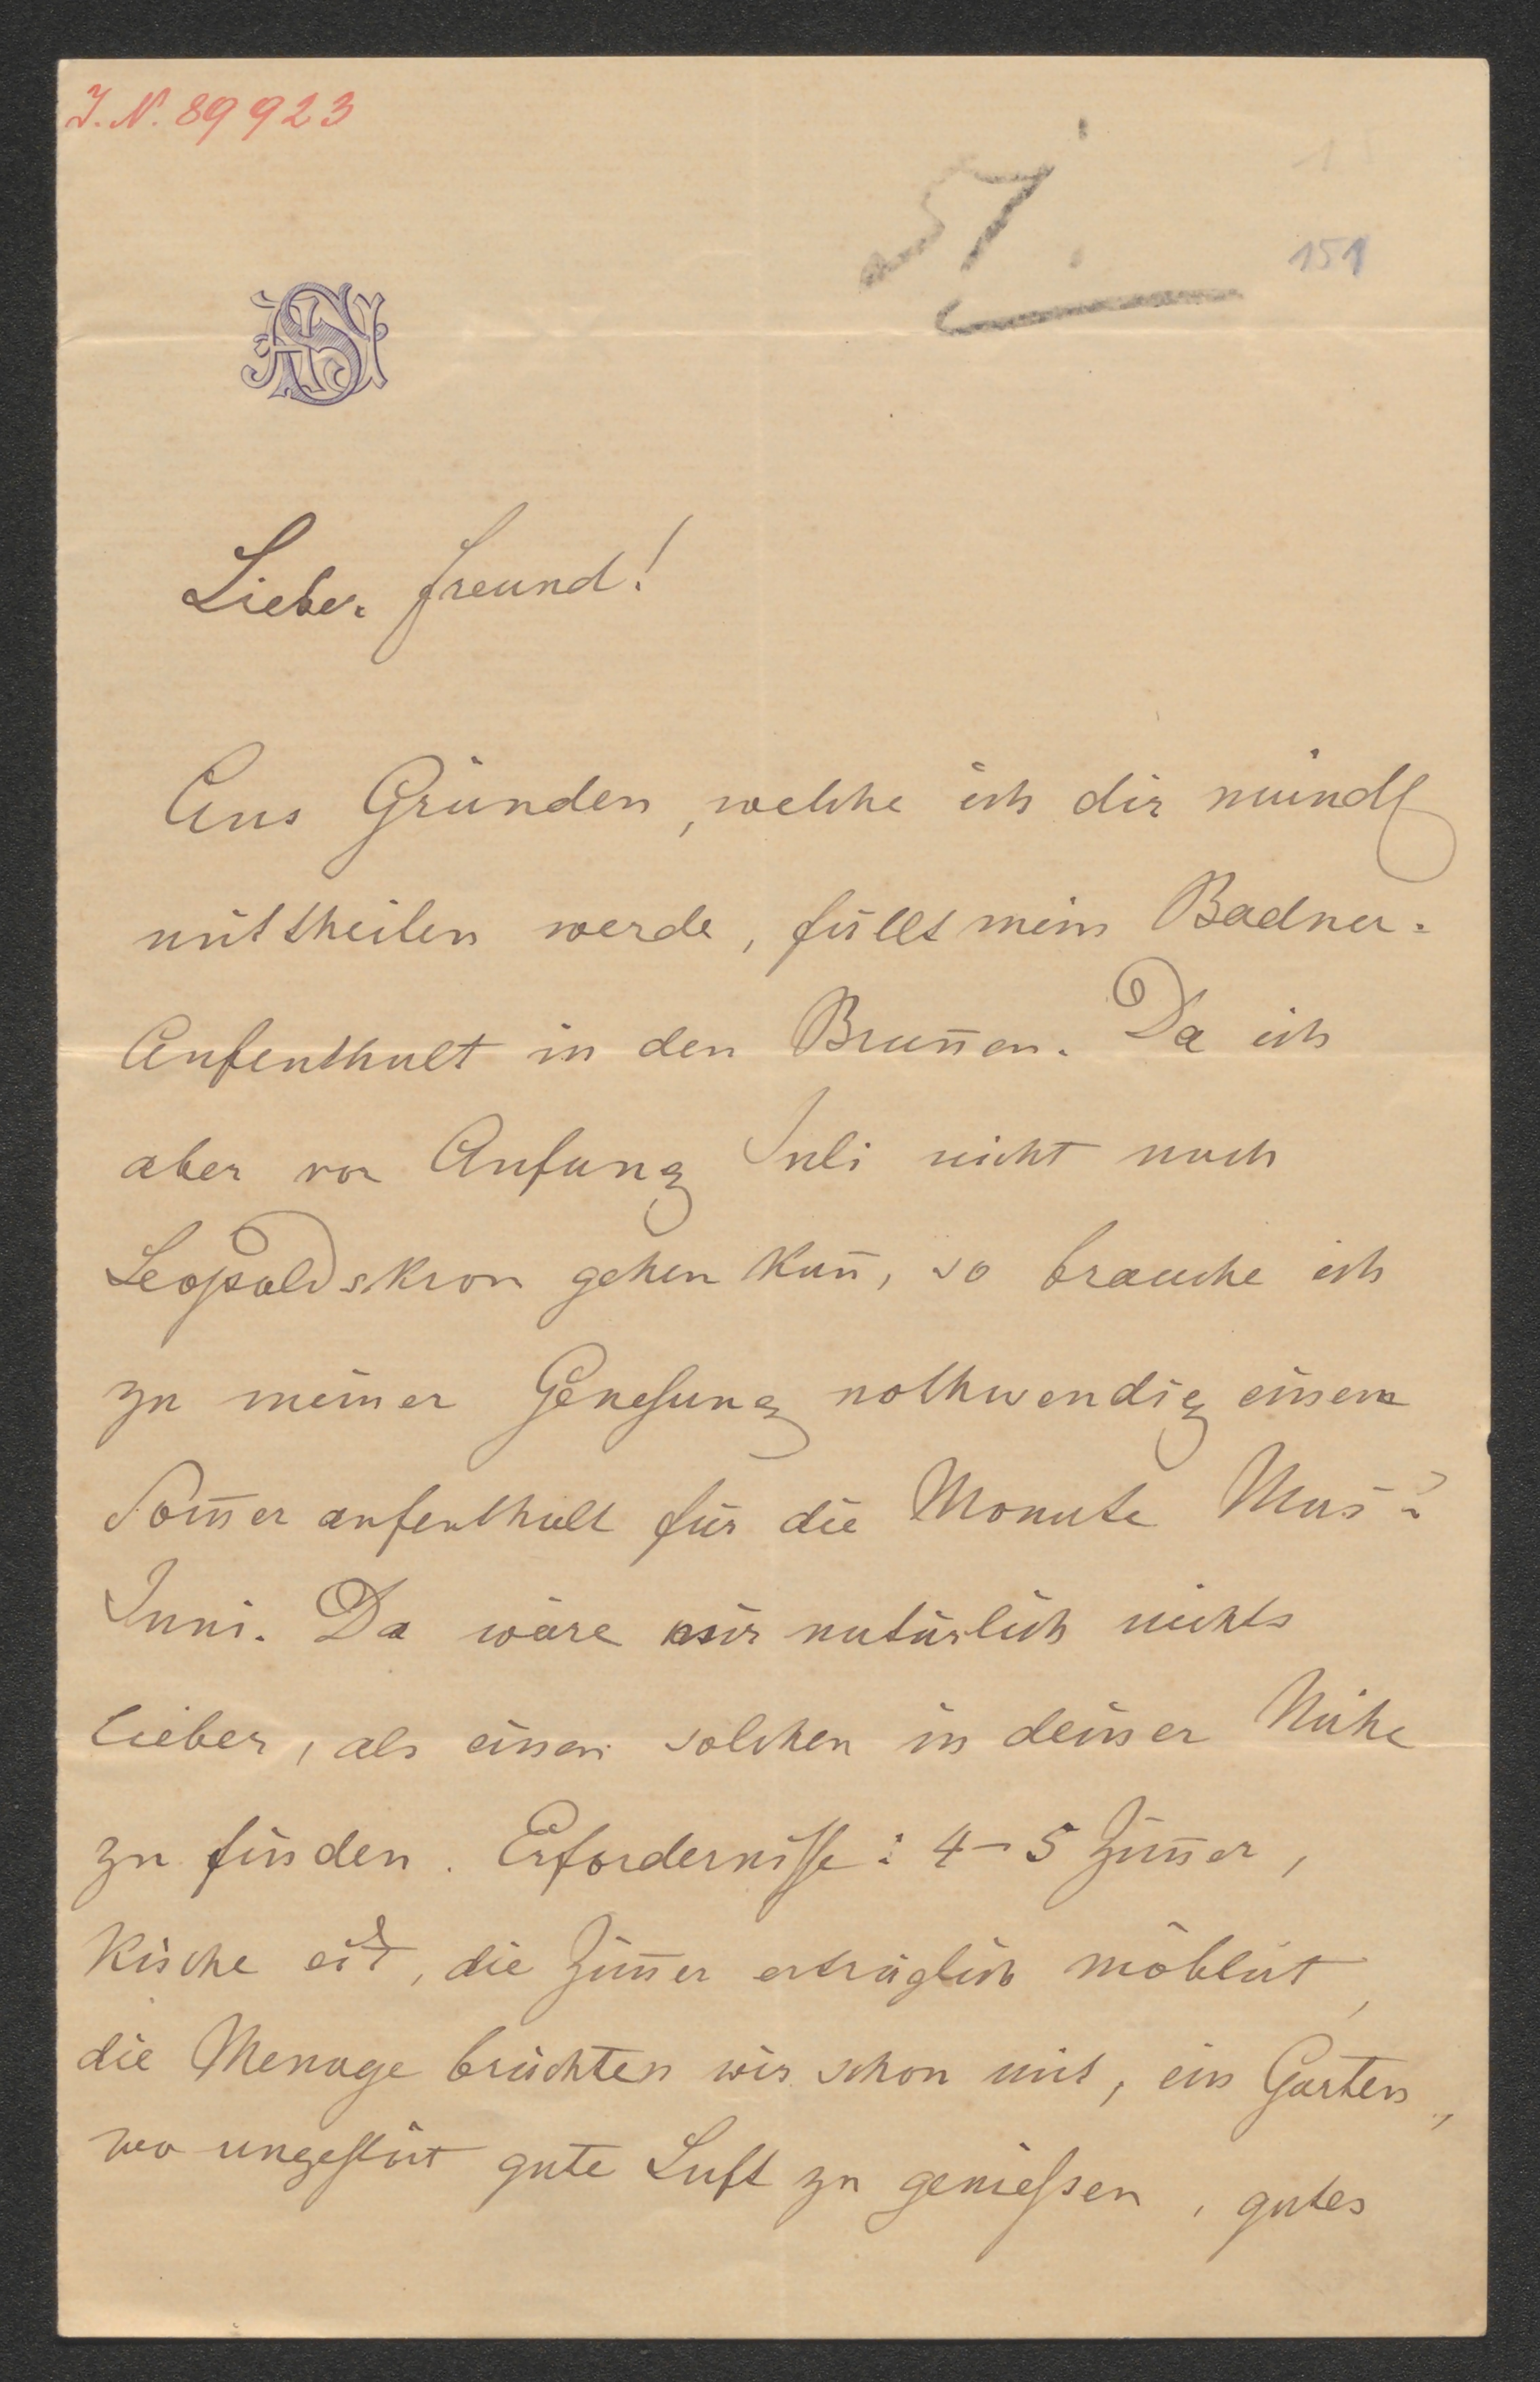 I. N. 89923
57.
151
Lieber Freund!
Aus Gründen, welche ich dir mündl
mittheilen werde, fällt mein Badner-
Aufenthalt in den Brun̄en. Da ich
aber vor Anfang Juli nicht nach
Leopoldskron gehen kan̄, so brauche ich
zu meiner Geneſung nothwendig einen
Som̄eraufenthalt für die Monate Mai &
Juni. Da wäre mir natürlich nichts
lieber, als einen solchen in deiner Nähe
zu finden. Erforderniſſe: 4–5 Zim̄er,
Küche etc, die Zim̄er erträglich möblirt,
die Menage brächten wir schon mit, ein Garten,
wo ungeſtört gute Luft zu genieſsen, gutes